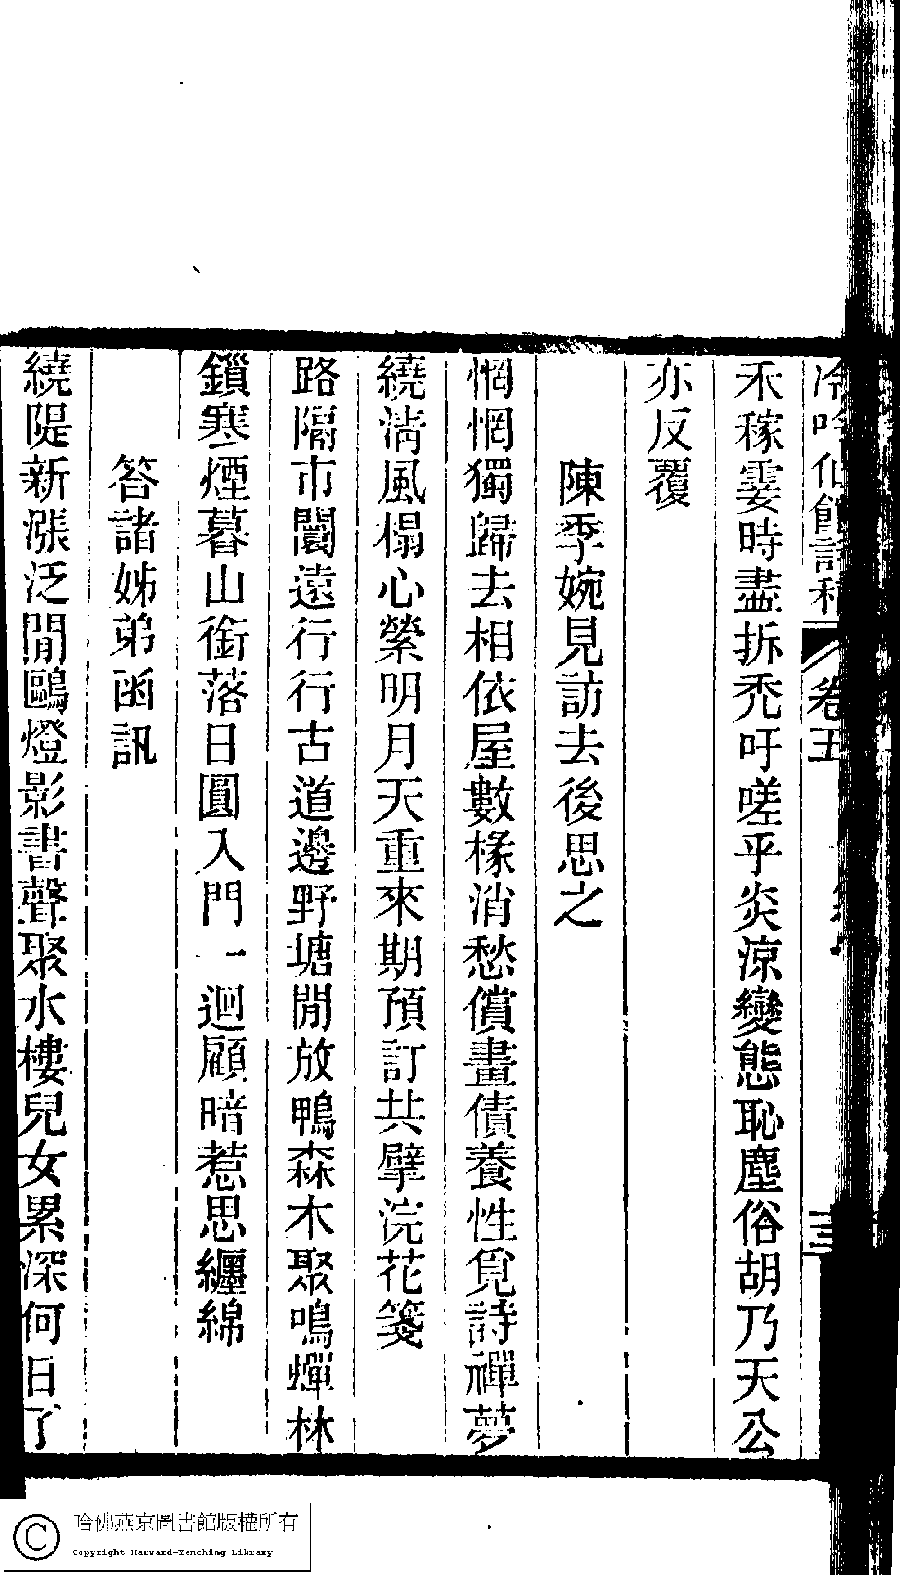 冷吟仙館詩稿 卷五 三
禾稼霎時盡拆禿吁嗟乎炎涼變態恥塵俗胡乃天公
亦反覆
陳季婉見訪去後思之
惘惘獨歸去相依屋數椽消愁償畫債養性覓詩禪夢
繞淸風榻心縈明月天重來期預訂共擘浣花箋
路隔市闤遠行行古道邊野塘閒放鴨森木聚鳴蟬林
鎖寒煙暮山銜落日圓入門一迴顧暗惹思纏綿
答諸姊弟函訊
繞隄新漲泛閒鷗燈影書聲聚水樓兒女累深何日了
哈佛燕京圖書館版權所有
Copyright Harvard-Yenching Library